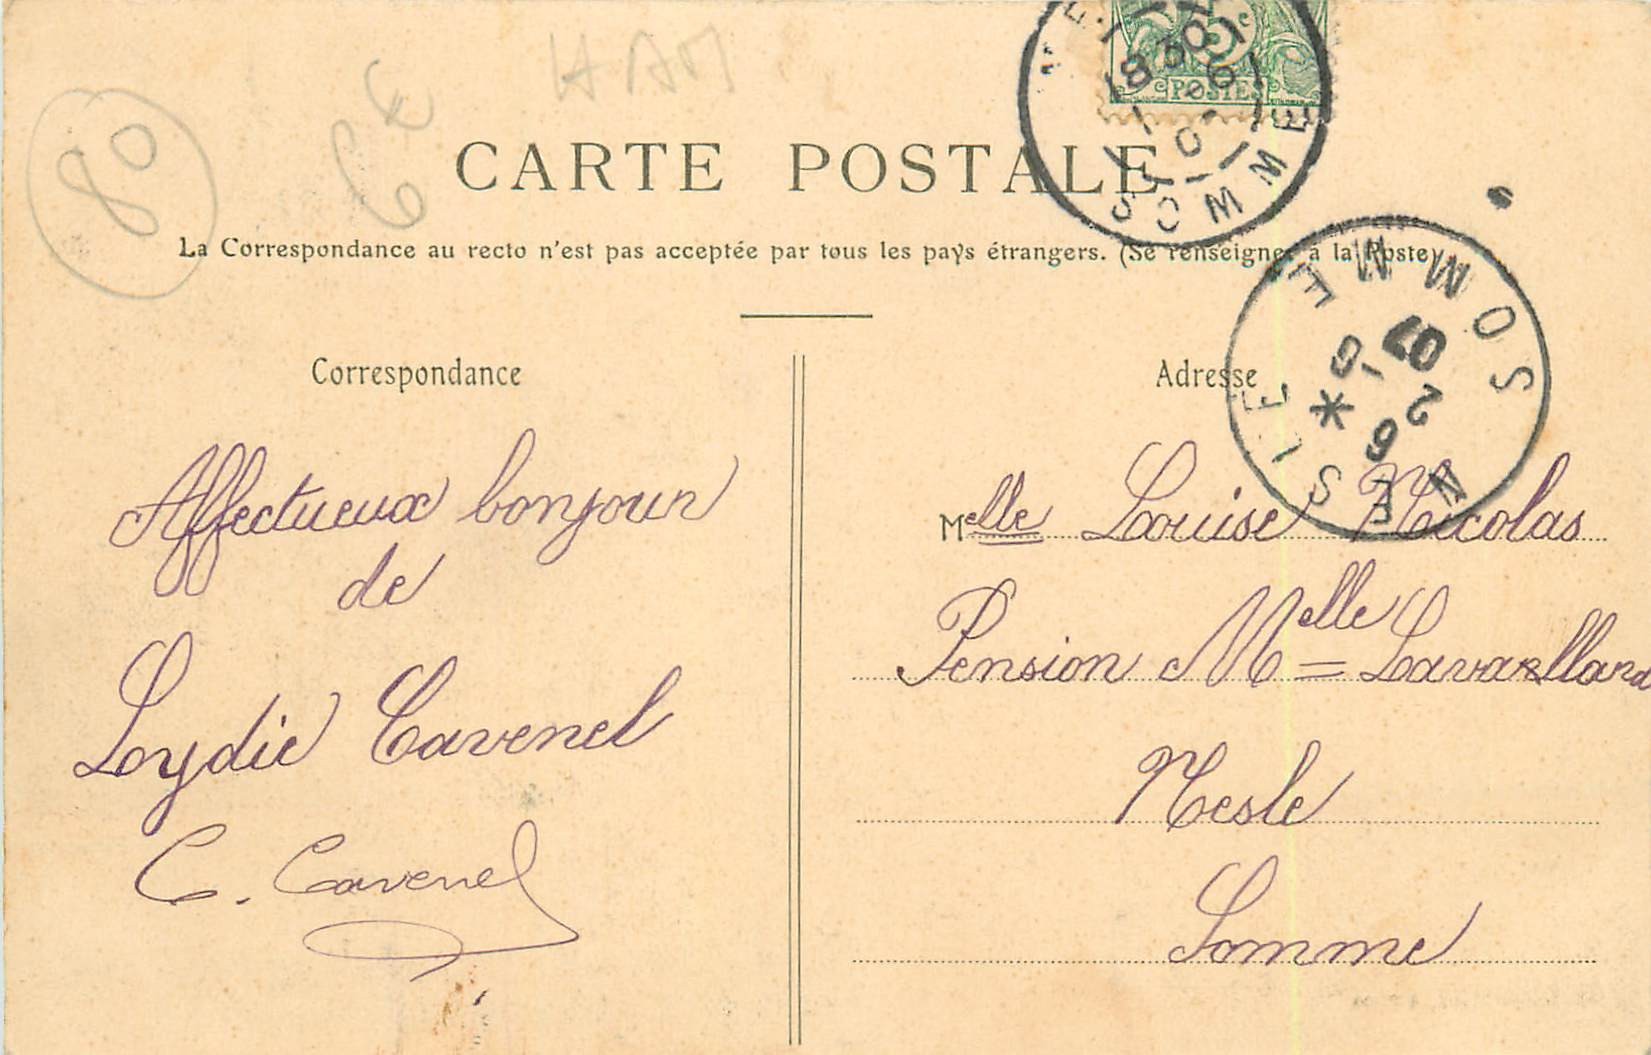 HAM
80
CARTE POSTALE
La Correspondance au recto n'est pas acceptée par tous les pays étrangers. (Se renseigner à la Poste)
POSTES
SOMME
NESLE SOMME
6 * 2 -6 07
Correspondance
Affectueux bonjour
de
Lydie Cavenel
C. Cavenel
Adresse
Melle Louise Nicolas
Pension Melle Lavallard
Nesle
Somme